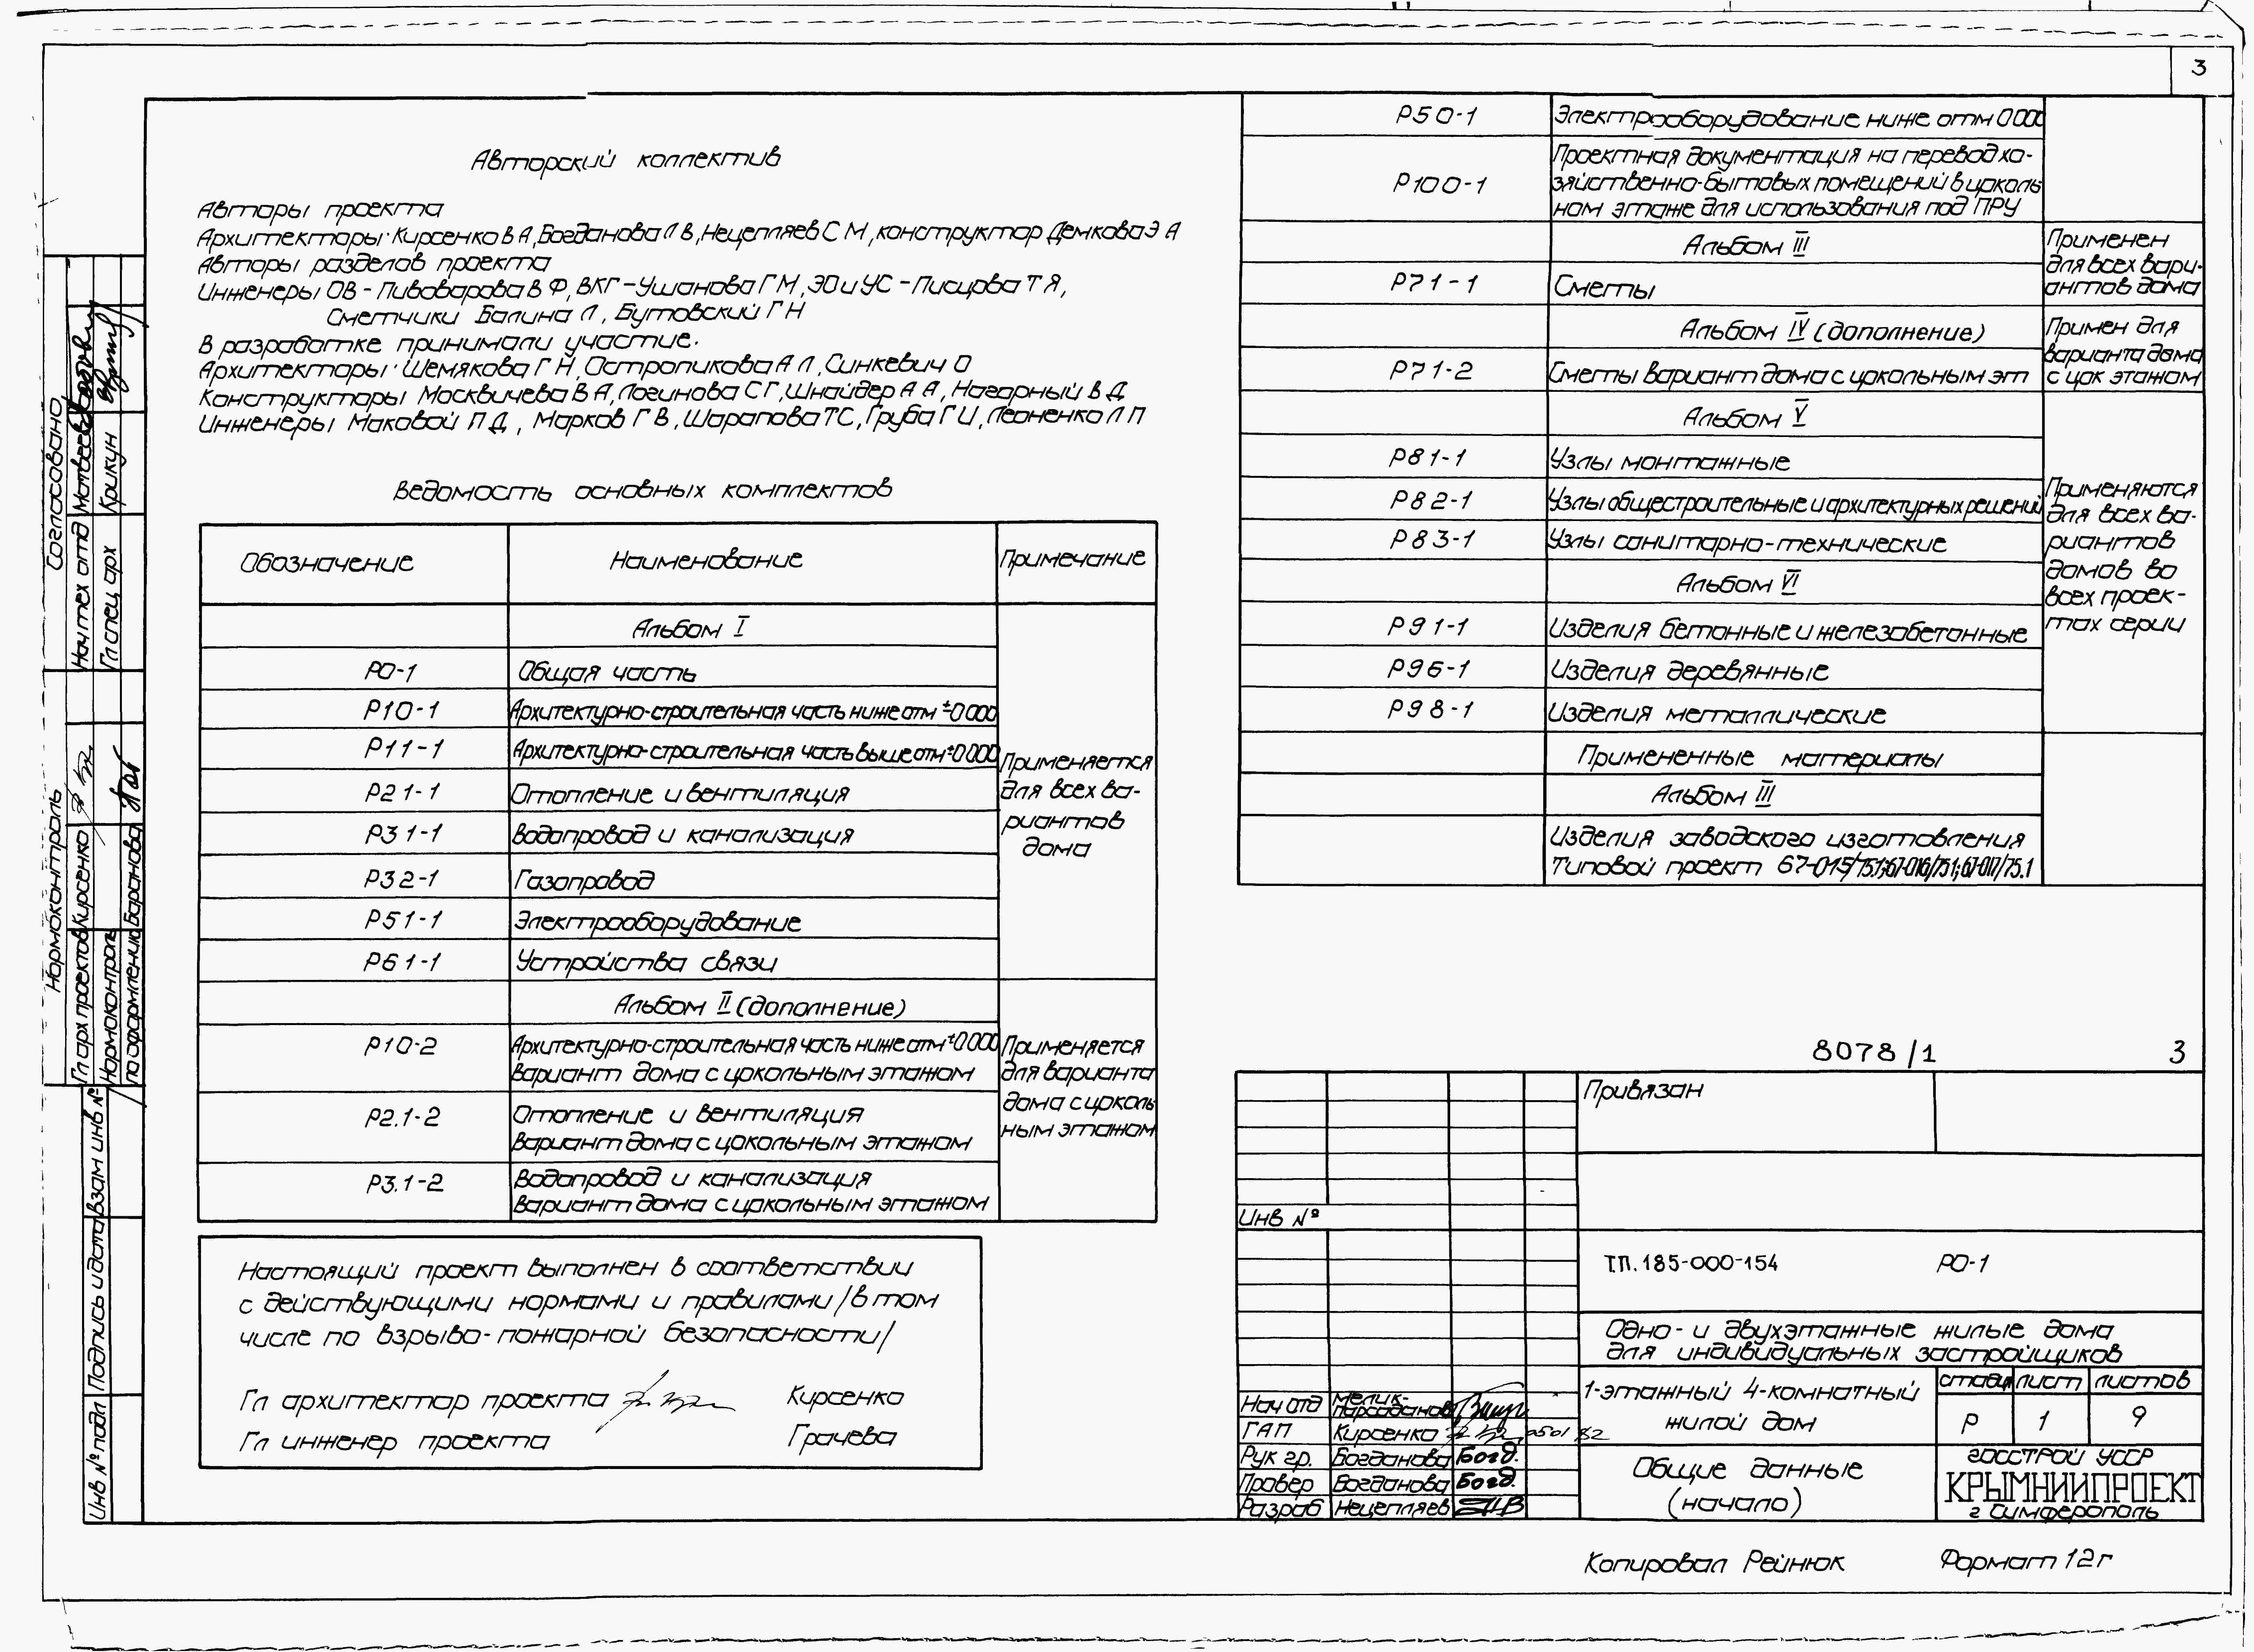 3
Авторский коллектив
Авторы проекта
Архитекторы: Кирсенко В А, Богданова Л В, Нецепляев С М, конструктор Демкова Э А
Авторы разделов проекта
Инженеры ОВ - Пивоварова В Ф, ВКГ - Ушанова Г М, ЭО и УС - Писцова Т Я,
Сметчики Балина Л, Бутовский Г Н
В разработке принимали участие.
Архитекторы: Шемякова Г Н, Остропикова А Л, Синкевич О
Конструкторы Москвичева В А, Логинова С Г, Шнайдер А А, Нагорный В Д
Инженеры Маковой П Д, Марков Г В, Шарапова Т С, Груба Г И, Леоненко Л П
Ведомость основных комплектов
Обозначение Наименование Примечание
Альбом I
Р0-1 Общая часть
Р10-1 Архитектурно-строительная часть ниже отм ±0 000
Р11-1 Архитектурно-строительная часть выше отм ±0 000
Р21-1 Отопление и вентиляция
Р31-1 Водопровод и канализация
Р32-1 Газопровод
Р51-1 Электрооборудование
Р61-1 Устройства связи
Применяется
для всех ва-
риантов
дома
Альбом II (дополнение)
Р10-2 Архитектурно-строительная часть ниже отм ±0 000
вариант дома с цокольным этажом
Р2.1-2 Отопление и вентиляция
вариант дома с цокольным этажом
Р3.1-2 Водопровод и канализация
вариант дома с цокольным этажом
Применяется
для варианта
дома с цоколь
ным этажом
Настоящий проект выполнен в соответствии
с действующими нормами и правилами /в том
числе по взрыво-пожарной безопасности/
Гл архитектор проекта Кирсенко
Гл инженер проекта Грачева
Р50-1 Электрооборудование ниже отм 0 000
Р100-1 Проектная документация на перевод хо-
зяйственно-бытовых помещений в цоколь
ном этаже для использования под ПРУ
Альбом III
Р71-1 Сметы
Применен
для всех вари-
антов дома
Альбом IV (дополнение)
Р71-2 Сметы вариант дома с цокольным эт
Примен для
варианта дома
с цок этажом
Альбом V
Р81-1 Узлы монтажные
Р82-1 Узлы общестроительные и архитектурных решений
Р83-1 Узлы санитарно-технические
Альбом VI
Р91-1 Изделия бетонные и железобетонные
Р96-1 Изделия деревянные
Р98-1 Изделия металлические
Применяются
для всех ва-
риантов
домов во
всех проек-
тах серии
Примененные материалы
Альбом III
Изделия заводского изготовления
Типовой проект 67-015/75.1; 67-016/75.1; 67-017/75.1
8078/1 3
Привязан
Инв №
Т.П. 185-000-154 Р0-1
Одно- и двухэтажные жилые дома
для индивидуальных застройщиков
1-этажный 4-комнатный
жилой дом
стади лист листов
Р 1 9
Общие данные
(начало)
госстрой УССР
КРЫМНИИПРОЕКТ
г Симферополь
Нач отд Мелик-
парсаданов
ГАП Кирсенко
Рук гр. Богданова Богд.
Провер Богданова Богд.
Разраб Нецепляев
Копировал Рейнюк Формат 12г
Согласовано
Нач тех отд
Гл спец арх Крикун
Нормоконтроль
Гл арх проектов Кирсенко
Нормоконтроль
по оформлению Баранова
Взам инв №
Подпись и дата
Инв № подл